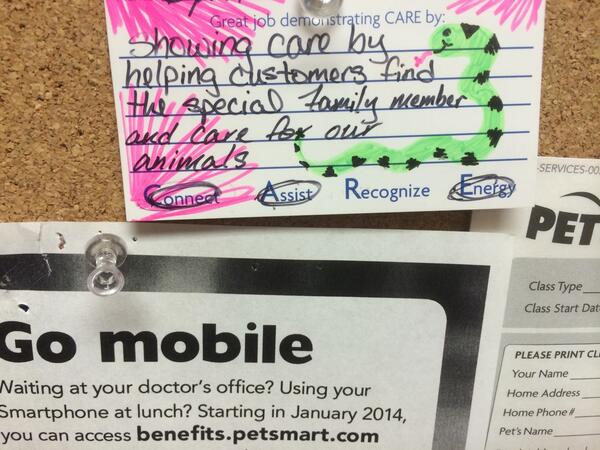 Great job demonstrating CARE by:
Showing care by
helping customers find
the special family member
and care for our
animals
Connect Assist Recognize Energy
-SERVICES-00
PET
Class Type
Class Start Dat
PLEASE PRINT CL
Your Name
Home Address
Home Phone #
Pet's Name
Go mobile
Waiting at your doctor's office? Using your
Smartphone at lunch? Starting in January 2014,
you can access benefits.petsmart.com